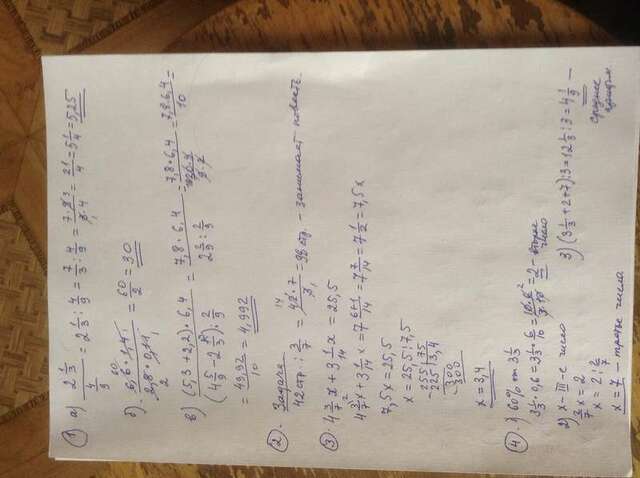 1) а) 2 1/3 / 4/9 = 2 1/3 : 4/9 = 7/3 : 4/9 = 7·9 3/3 1·4 = 21/4 = 5 1/4 = 5,25
б). 60 6,6·1,4 1/2,8 2·0,11 1 = 60/2 = 30
в) (5,3 + 2,2)·6,4 / (4 5/9 - 2 1/3) : 2/9 = 7,8·6,4 / 2 2/9 : 2/9 = 7,8·6,4 / 20·9/9·2 = 7,8·6,4/10 =
= 49,92/10 = 4,992
2. Задача
42 стр. : 3/7 = 14 42·7/3 1 = 98 стр. - занимает повесть.
3) 4 3/7 x + 3 1/14 x = 25,5
4 3/7 2 x + 3 1/14 x = 7 6+1/14 = 7 7/14 = 7 1/2 = 7,5x
7,5x = 25,5
x = 25,5 : 7,5
- 255 | 75
225 | 3,4
- 300
300
x = 3,4
4. 1) 60% от 3 1/3
3 1/3 · 0,6 = 3 1/3 · 6/10 = 10·6 2/3·10 = 2 - второе число
2) x - III-е число
2/7 x = 2
x = 2 : 2/7
x = 7 - третье число
3) (3 1/3 + 2 + 7) : 3 = 12 1/3 : 3 = 4 1/9 -
среднее